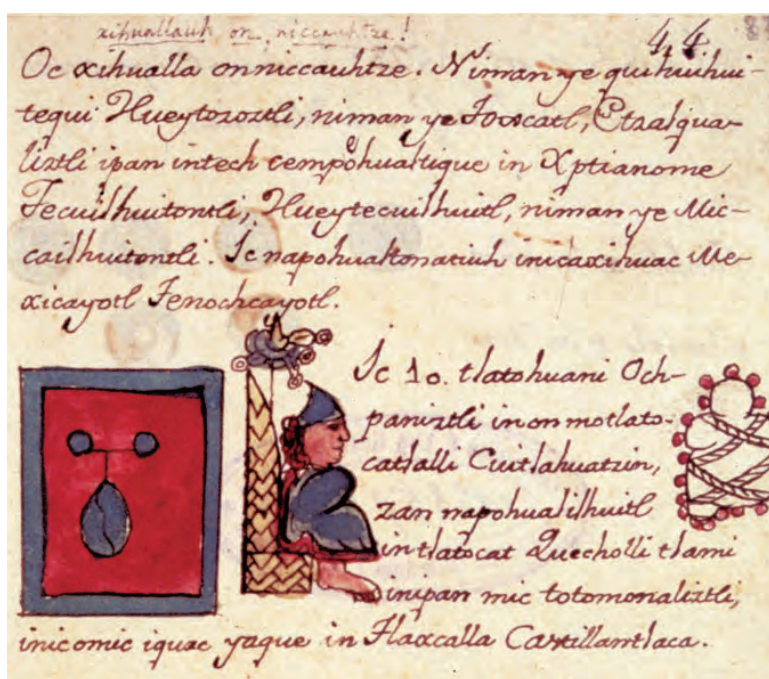 xihuallauh on, niccauhtze!
44.
Oc xihualla onniccauhtze. Niman ye quihuihui-
tequi Hueytozoztli, niman ye Toxcatl, Etzalqua-
liztli ipan intech cempohualtique in Xptianome
Tecuilhuitontli, Hueytecuilhuitl, niman ye Mic-
cailhuitontli. Ic napohualtonatiuh inicaxihuac Me-
xicayotl Tenochcayotl.
Ic 10. tlatohuani Och-
paniztli in on motlato-
catlalli Cuitlahuatzin,
zan napohualilhuitl
in tlatocat Quecholli tlami
inipan mic totomonaliztli,
inicomic iquac yaque in Tlaxcalla Castillantlaca.